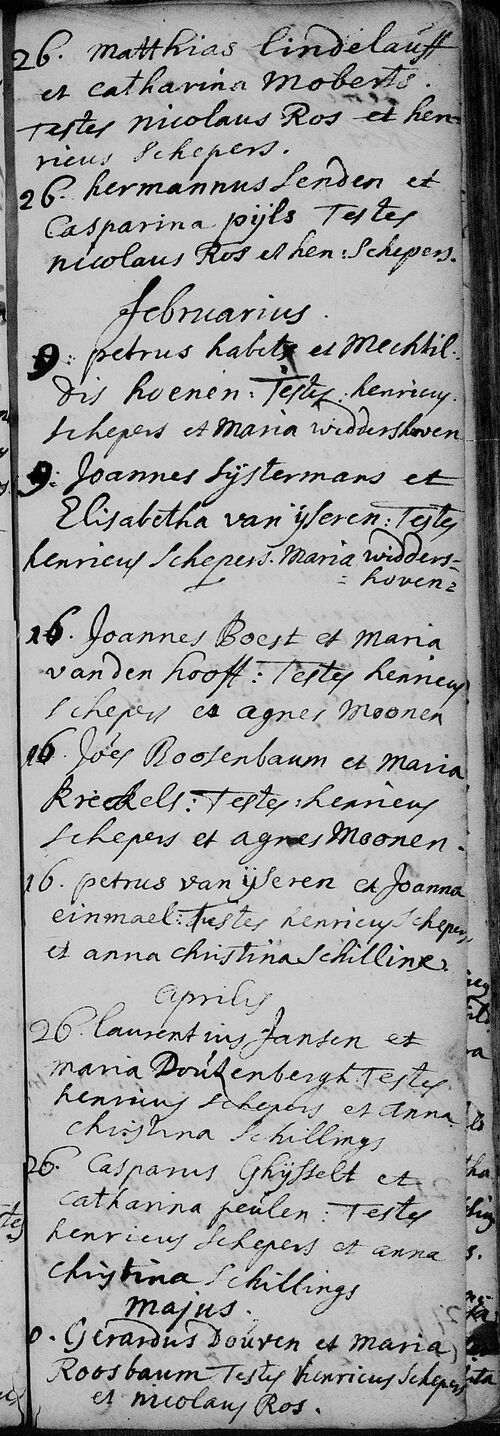 26. Matthias Lindelauff
et Catharina Moberts.
Testes nicolaus Ros et hen-
ricus Schepers.
26. hermannus Senden et
Casparina pijls Testes
nicolaus Ros et hen: Schepers.
februarius.
9. petrus habets et Mechtil-
dis hoenen: Testes henricus
Schepers et Maria widdershoven
9. Joannes Sijstermans et
Elisabetha van ijseren: Testes
henricus Schepers. Maria widders=
=hoven=
16. Joannes Boest et Maria
vanden hooff: Testes henricus
Schepers et agnes Moonen
16. Joes Roosenbaum et Maria
kreckels: Testes: henricus
Schepers et agnes Moonen.
16. petrus van ijseren et Joanna
einmael: Testes henricus Schepers
et anna christina Schilline
aprilis
26. laurentius Jansen et
maria Doutzenbergh. Testes
henricus Schepers et anna
christina Schillings
26. Casparus Ghijsselt et
Catharina peulen: Testes
henricus Schepers et anna
christina Schillings
majus.
Gerardus Douven et Maria
Roosbaum Testes henricus Schepers
et nicolaus Ros.